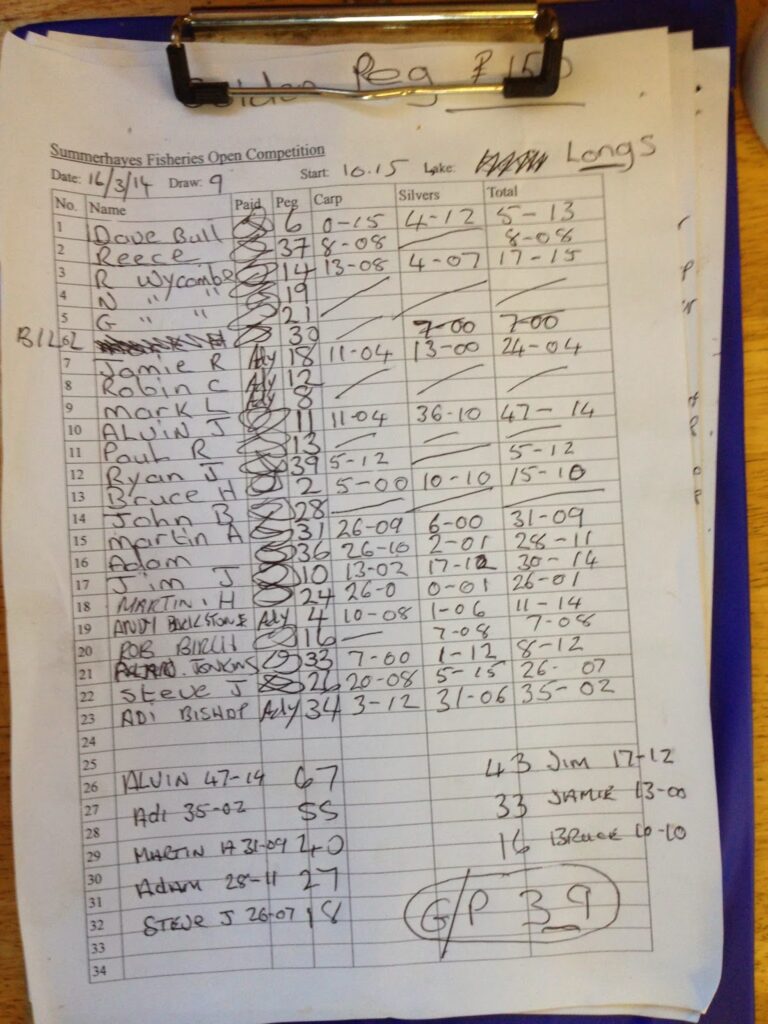 Golden Peg £150
Summerhayes Fisheries Open Competition
Date: 16/3/14 Draw: 9 Start: 10.15 Lake: Longs
No. Name Paid Peg Carp Silvers Total
1 Dave Bull 6 0-15 4-12 5-13
2 Reece 37 8-08 8-08
3 R Wycombe 14 13-08 4-07 17-15
4 N " " 19
5 G " " 21
6 BILL 30 7-00 7-00
7 Jamie R Ady 18 11-04 13-00 24-04
8 Robin C Ady 12
9 Mark L Ady 8
10 ALVIN J 11 11-04 36-10 47-14
11 Paul R 13
12 Ryan J 39 5-12 5-12
13 Bruce H 2 5-00 10-10 15-10
14 John B 28
15 Martin A 31 26-09 6-00 31-09
16 Adam 36 26-10 2-01 28-11
17 Jim J 10 13-02 17-12 30-14
18 MARTIN.H 24 26-0 0-01 26-01
19 ANDY Ady 4 10-08 1-06 11-14
20 ROB BIRCH 16 — 7-08 7-08
21 JENKINS 33 7-00 1-12 8-12
22 Steve J 26 20-08 5-15 26-07
23 ADI BISHOP Ady 34 3-12 31-06 35-02
24
25 43 JIM 17-12
26 ALVIN 47-14 67
27 Adi 35-02 55 33 JAMIE 13-00
28
29 MARTIN A 31-09 40 16 BRUCE 10-10
30
31 ADAM 28-11 27
32 STEVE J 26-07 18 G/P 39
33
34